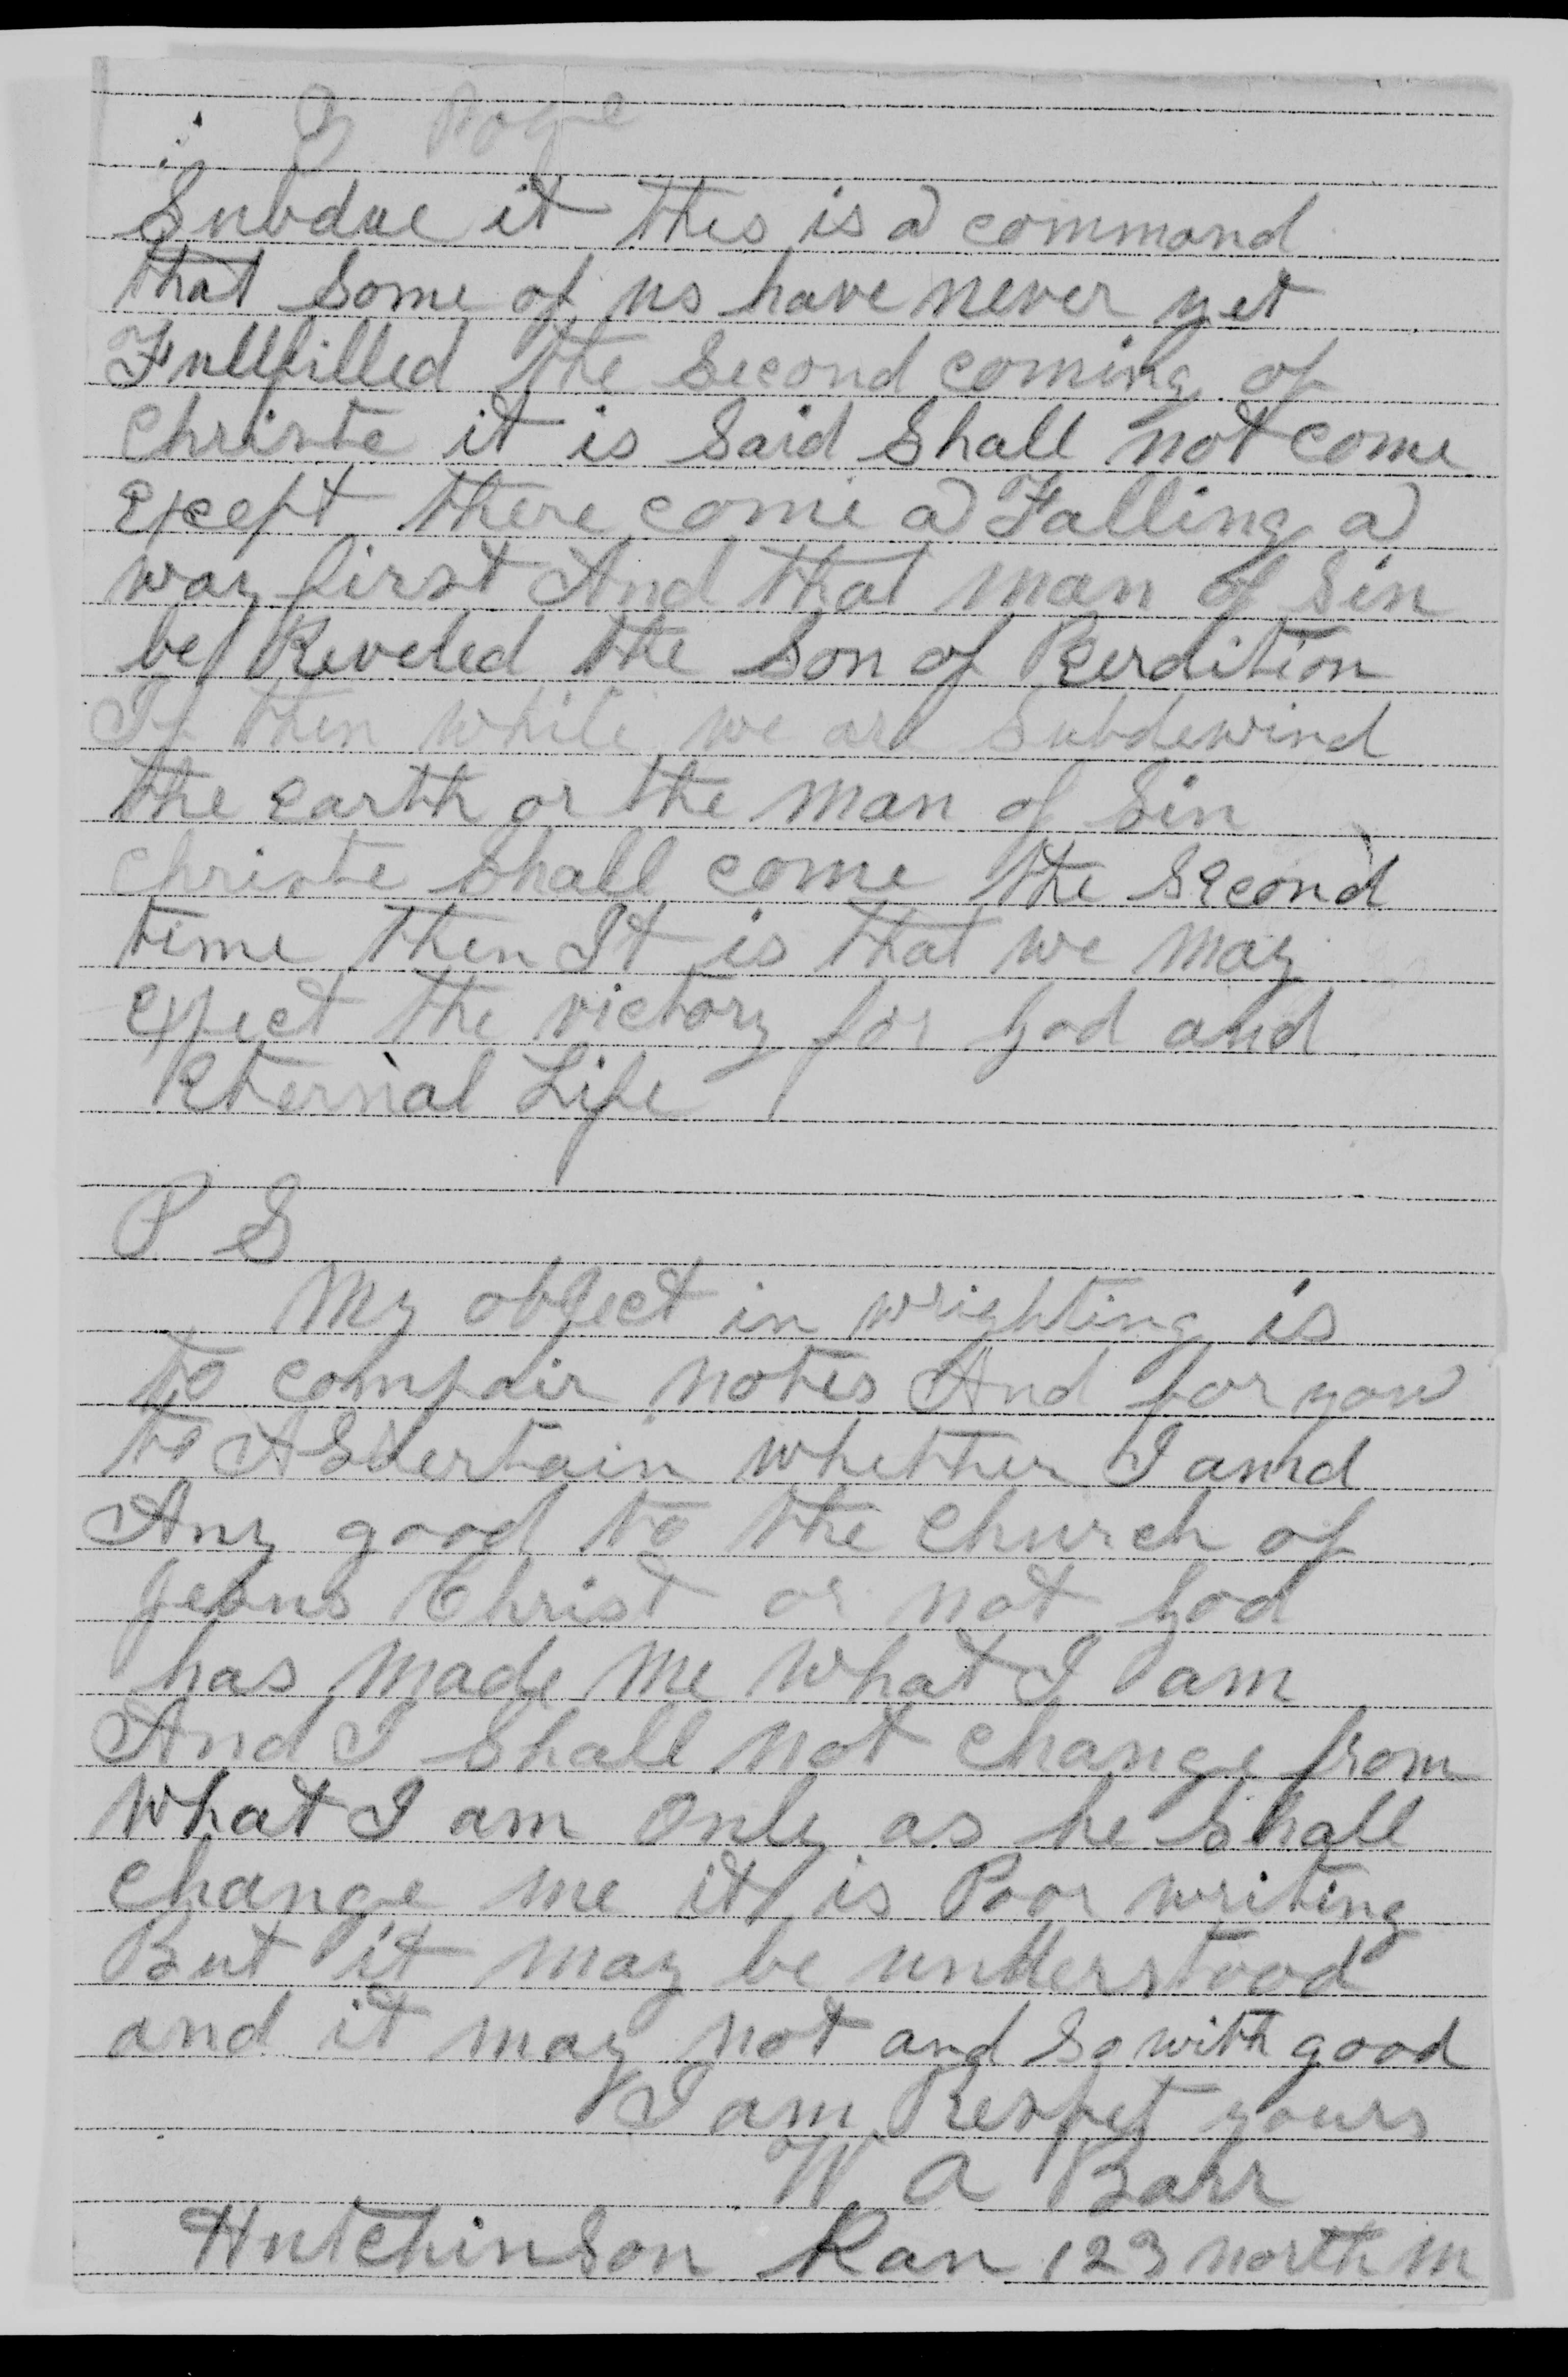 Page
Subdue it this is a command
that some of us have never yet
Fullfilled the Second coming of
Christe it is Said Shall not come
Except there come a Falling a
way first And that man of Sin
be Reveled the Son of Perdition
If then while we are Subdewind
the earth or the man of Sin
Christe Shall come the Second
time then It is that we may
expect the victory for God and
Eternal Life
P S
My object in wrighting is
to compair notes And for you
to ASSertain whether I am
Any good to the Church of
Jesus Christ or not God
has made me what I am
And I Shall not change from
what I am Only as he Shall
change me it is Poor writing
But it may be understood
and it may not and So with good
I am Respet yours
W A Barr
HutchinSon Kan 123 north m